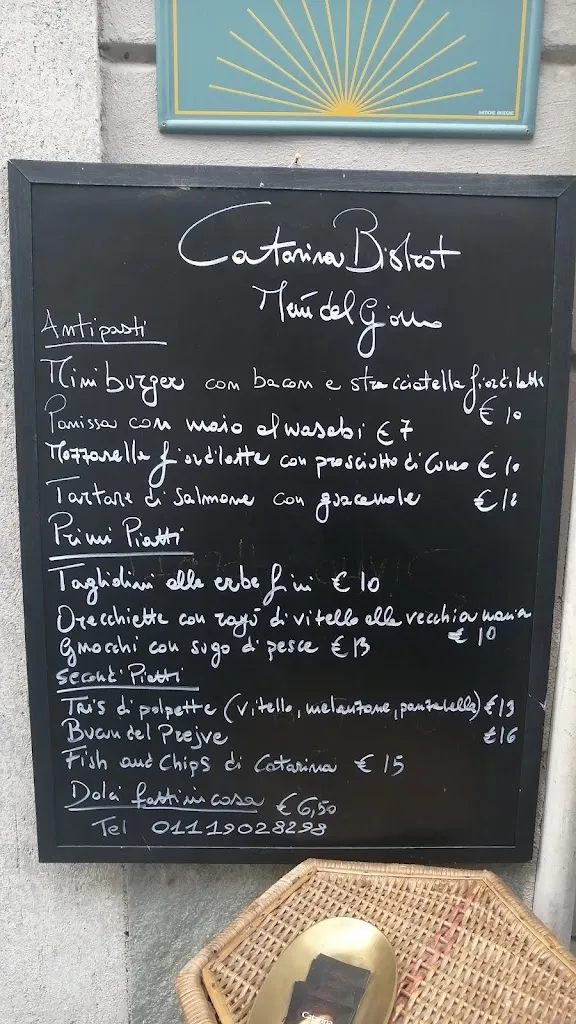 Catarina Bistrot
Menù del Giorno
Antipasti
Mini burger con bacon e stracciatella fiordilatte
€ 10
Panissa con maio al wasabi € 7
Mozzarella fiordilatte con prosciutto di Cuneo € 10
Tartare di Salmone con guacamole
Primi Piatti
Tagliolini alle erbe fini € 10
Orecchiette con ragù di vitello alla vecchia maniera
€ 10
Gnocchi con sugo di pesce € 13
Secondi Piatti
Tris di polpette (vitello, melanzane, panzanella) € 13
Buan del Prejve €16
Fish and Chips di Catarina € 15
Dolci fatti in casa € 6,50
Tel 01119028298